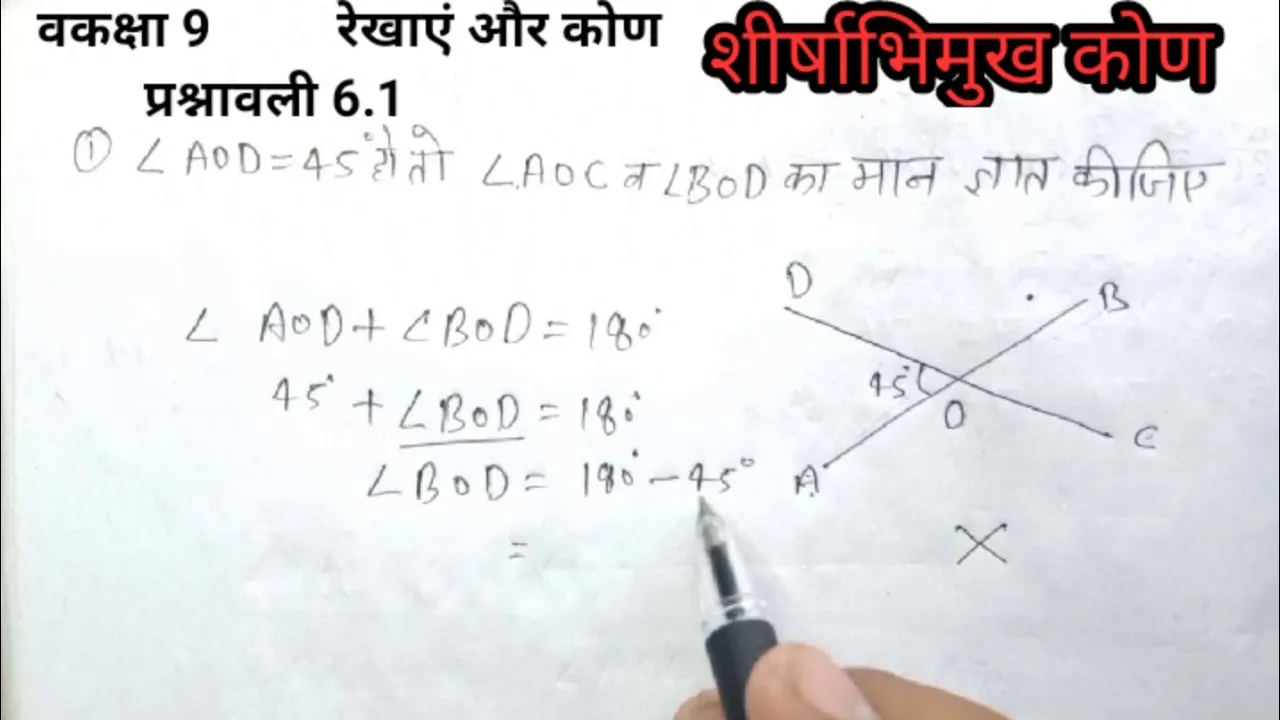 वकक्षा 9 रेखाएं और कोण
शीर्षाभिमुख कोण
प्रश्नावली 6.1
① ∠AOD = 45° हो तो ∠AOC व ∠BOD का मान ज्ञात कीजिए
∠ AOD + ∠BOD = 180°
45° + ∠BOD = 180°
∠BOD = 180° - 45°
=
D
B
45°
O
C
A